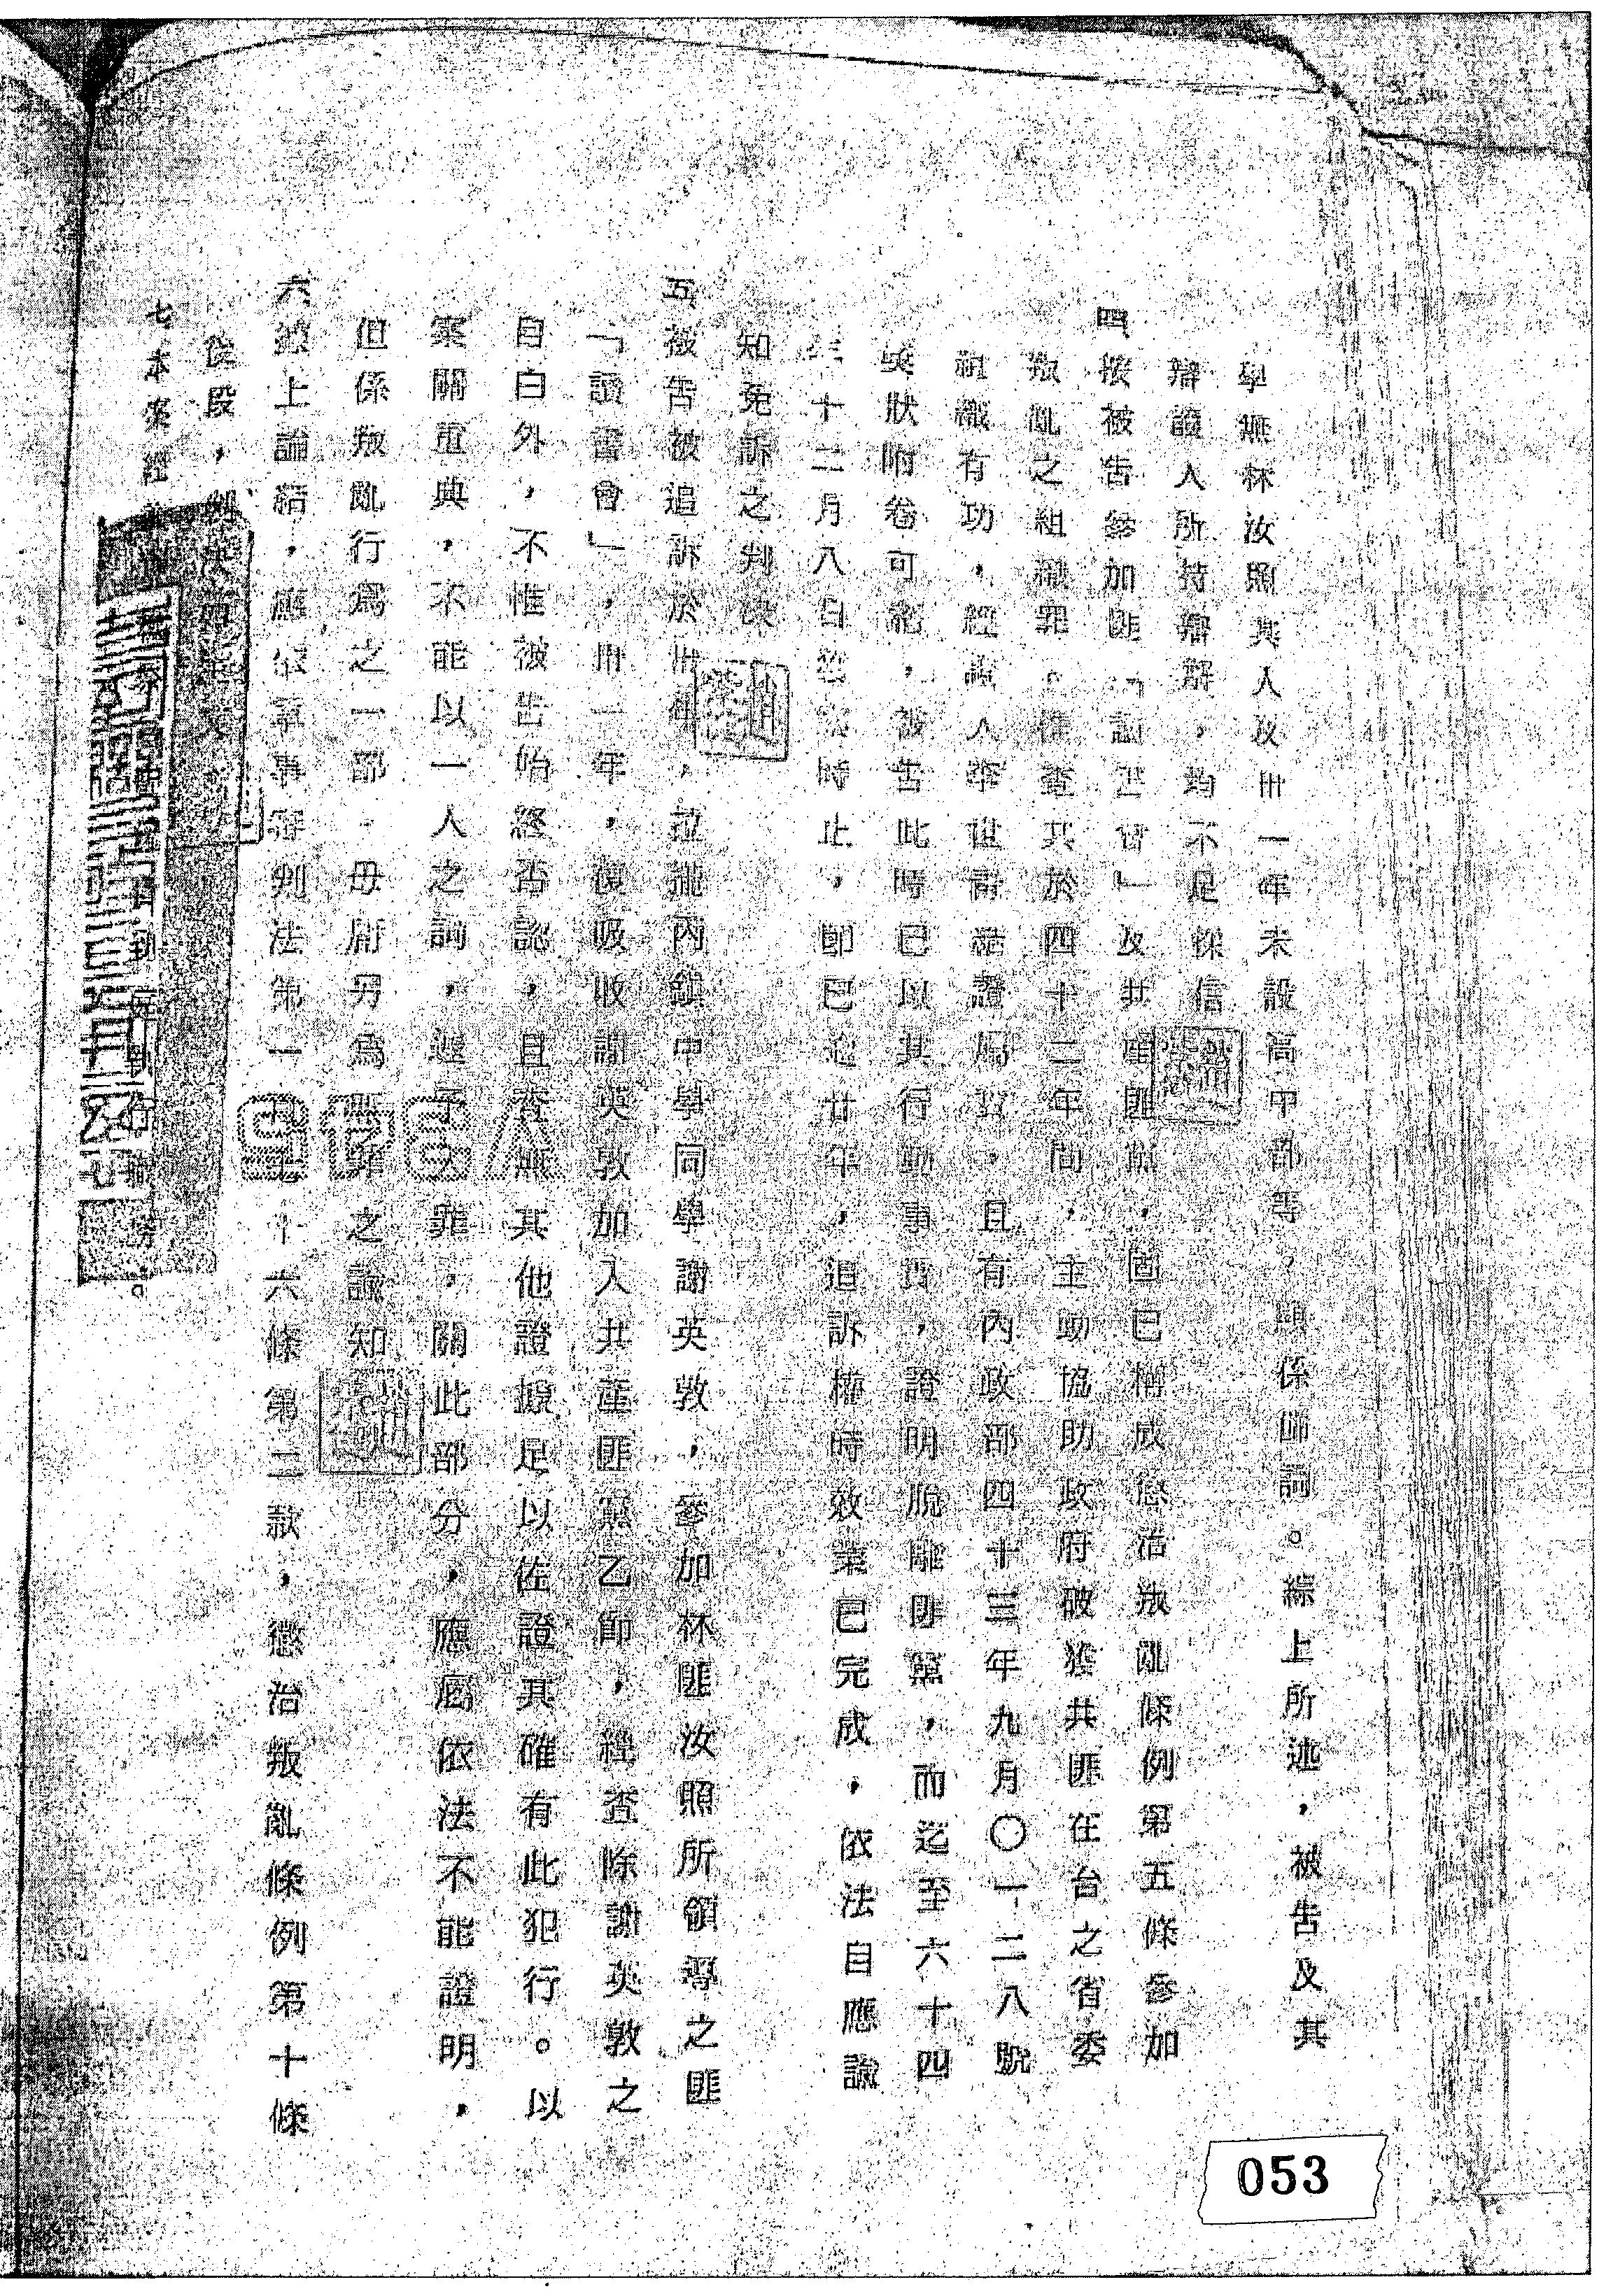 學無林汝照其人及卅一年未設高中部等，顯係飾詞。綜上所述，被告及其
辯護人所持辯解，均不足採信
四、按被告參加匪「讀書會」及共產匪黨，固已構成懲治叛亂條例第五條參加
叛亂之組織罪。惟查其於四十二年間，主動協助政府破獲共匪在台之省委
組織有功，經證人李世甫結證屬實，且有內政部四十三年九月〇一二八號
獎狀附卷可稽，被告此時已以其行動事實，證明脫離匪黨，而迄至六十四
年十二月八日發覺時止，即已逾廿年，追訴權時效業已完成，依法自應諭
知免訴之判決
五、被告被追訴於卅年，拉攏內鎮中學同學謝英敦，參加林匪汝照所領導之匪
「讀書會」，卅一年，復吸收謝英敦加入共產匪黨乙節，經查除謝英敦之
自白外，不惟被告始終否認，且查無其他證據足以佐證其確有此犯行。以
案關重典，不能以一人之詞，遽予入罪，關此部分，應屬依法不能證明，
但係叛亂行為之一部，毋庸另為無罪之諭知
六、據上論結，應依軍事審判法第一百七十六條第二款，懲治叛亂條例第十條
後段，判決如主文。
七、本案經
STGA
053